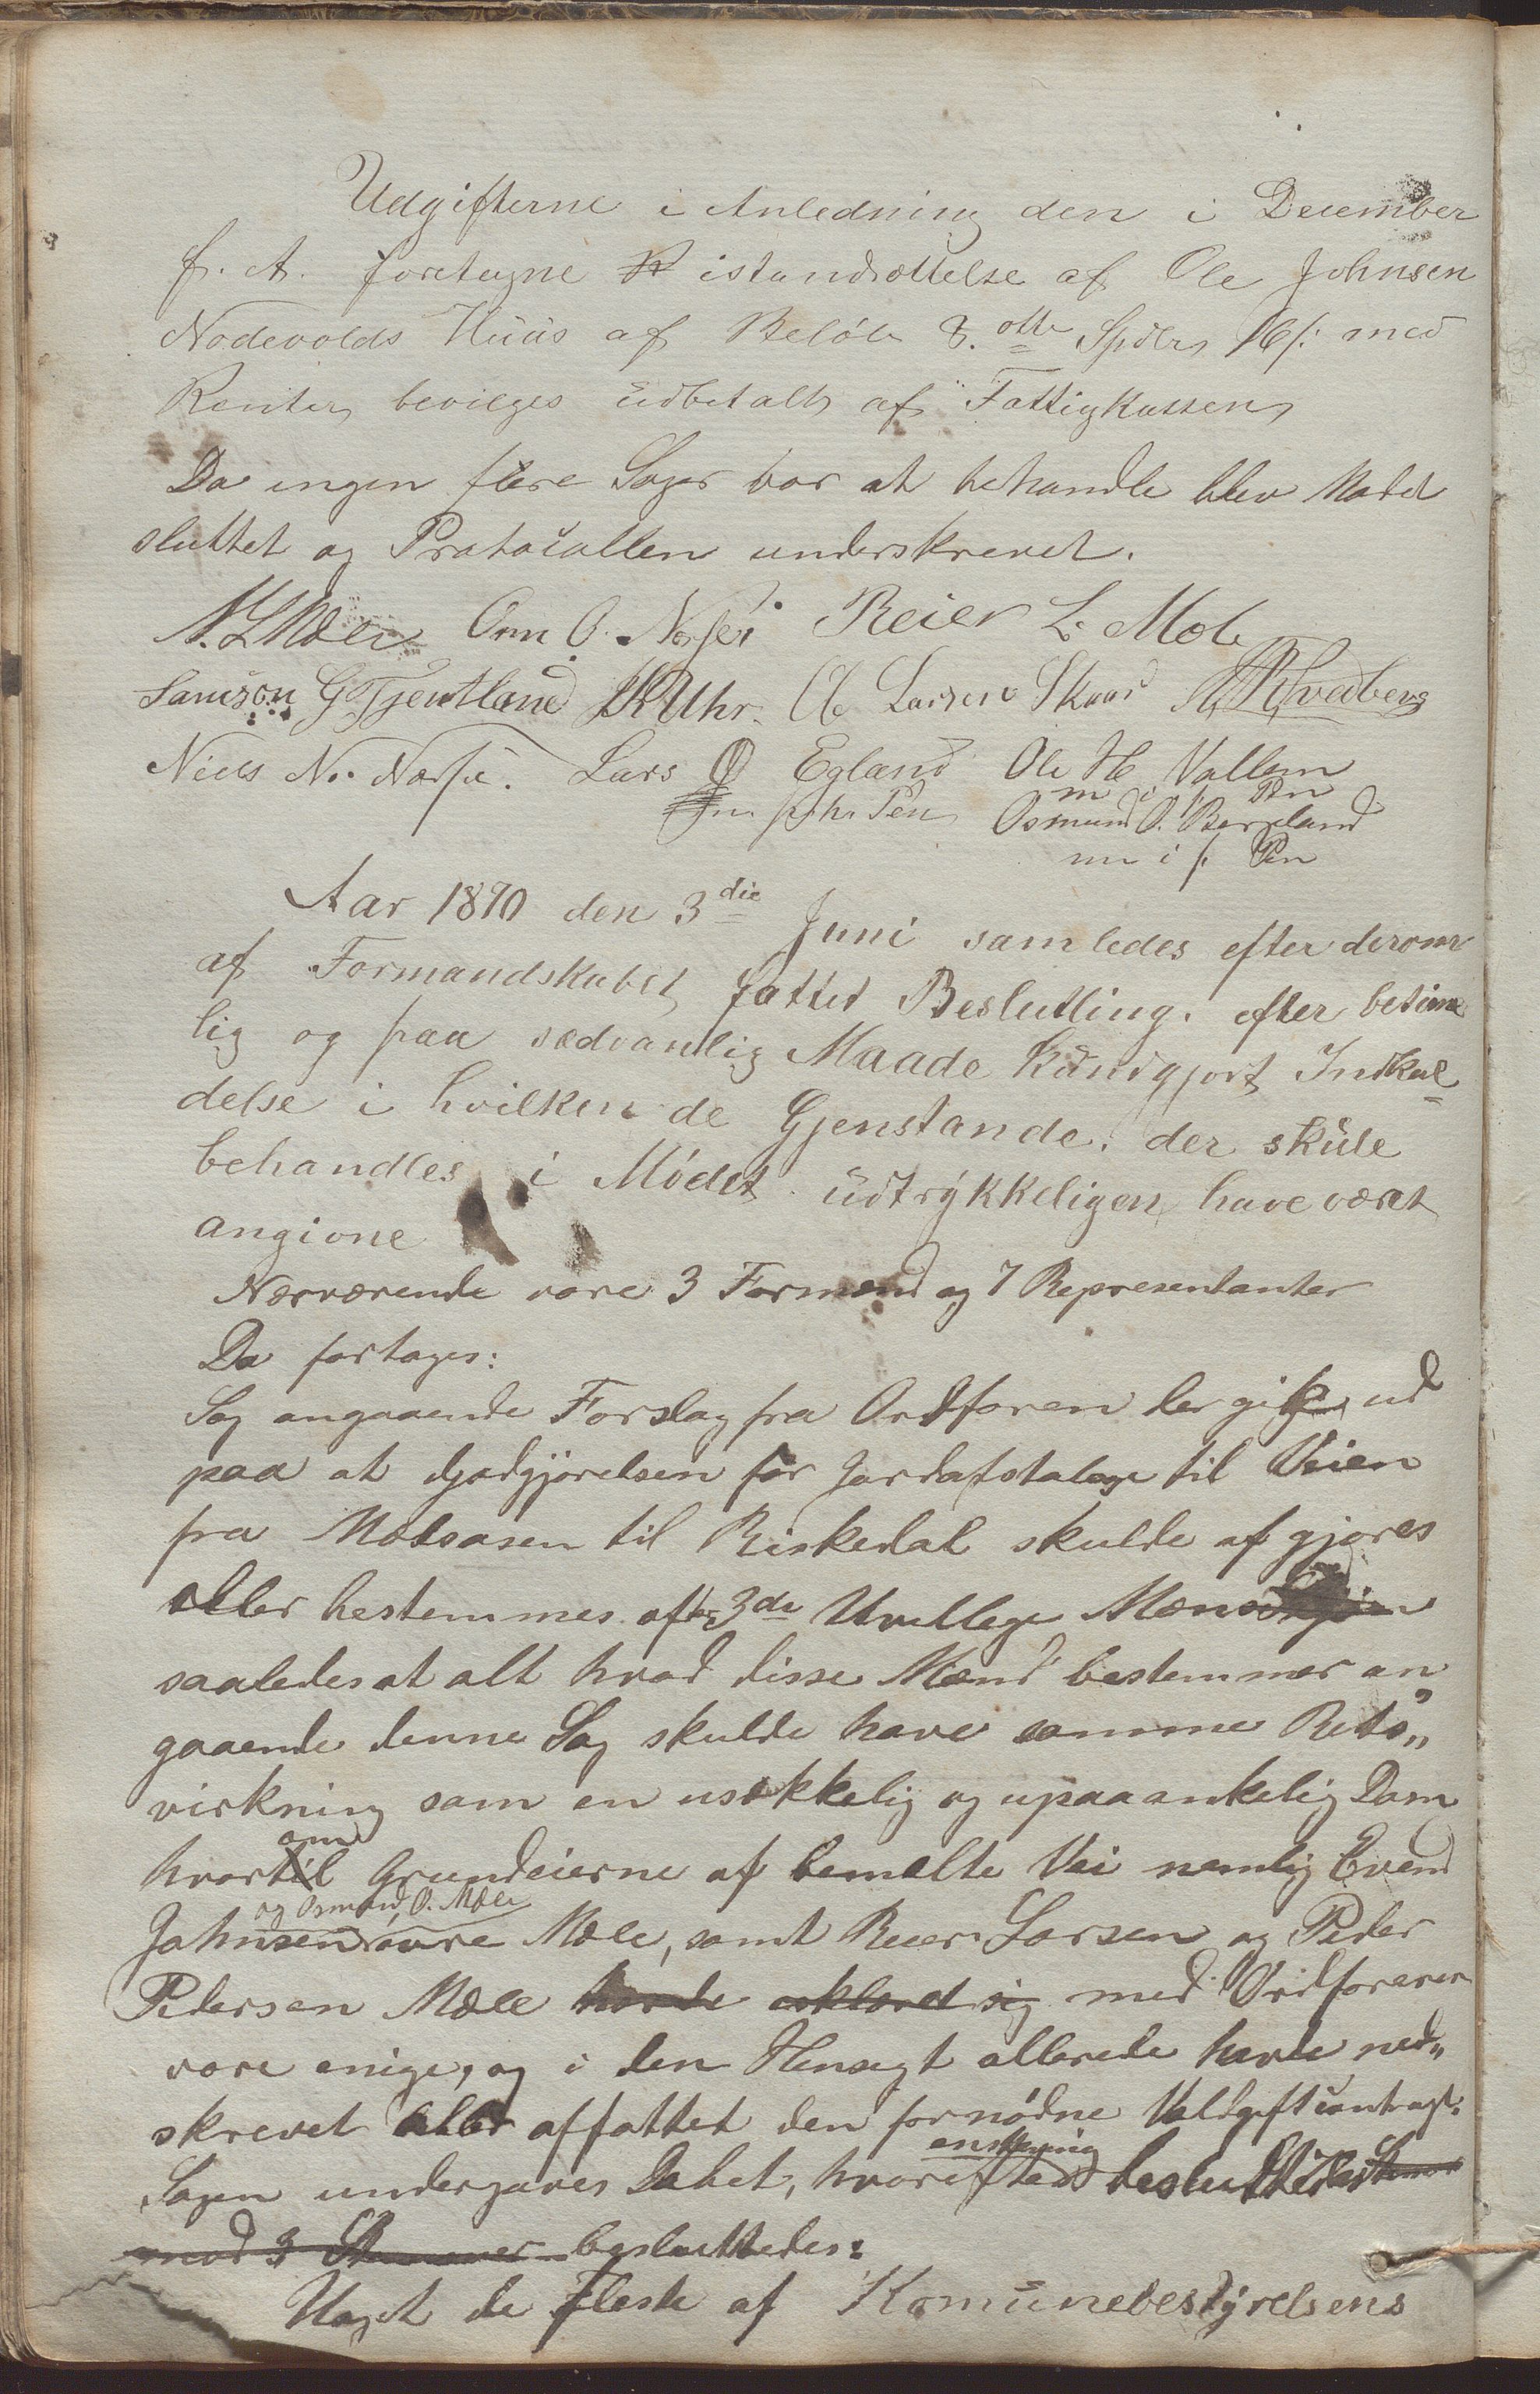 Udgifterne i Anledning den i December
f. A. foretagne istandsættelse af Ole Johnsen
Nodevolds Huus af Beløb 8. otte Spdlr 16 s: med
Renter bevilges udbetalt af Fattigkassen
Da ingen flere Sager var at behandle blev Mødet
sluttet og Protocollen underskrevet.
Onn O. Norse Reier L. Mæle
Samson G Gjentland Ole Larsen Skaar
Niels N. Norse. Lars O Egland Ole H Vallem
m i f. Pen
m. f. h. Pen Osmund O. Bergeland
m i f. Pen
Aar 1870 den 3die Juni samledes efter derom
af Formandskabet fattet Beslutling. efter betime
lig og paa sædvanlig Maade kundgjort Indkal
delse i hvilken de Gjenstande. der skule
behandles i Mødet udtrykkeligen have været
angivne
Nærværende vare 3 Formænd og 7 Representanter
Da fortages:
Sag angaaende Forslag fra Ordføren der gik ud
paa at Godgjørelsen for Jordafstaelse til Veien
fra Mælsosen til Riskedal skulde afgjøres
eller bestemmes af 3de Uvillige Mænd
saaledes at alt hvad disse Mænd bestemmer an
gaaende denne Sag skulde have samme Rets„
virkning som en usvækkelig og upaaankelig Dom
om
hvortil Grundeierne af bemelte Vei nemlig Evend
og Osmund O. Mæle
Johnsen øvre Mæle, samt Reier Larsen og Peder
Pedersen Mæle havde erklæret sig med Ordføreren
vare enige, og i den Hensigt allerede havde ned„
skrevet eller affattet den fornødne Voldgiftcontragt.
enstemmig
Sagen undergaves Debat, hvorefter besluttedes
mod 3 Stemmer besluttedes:
Uagt de fleste af Komunebestyrelsens